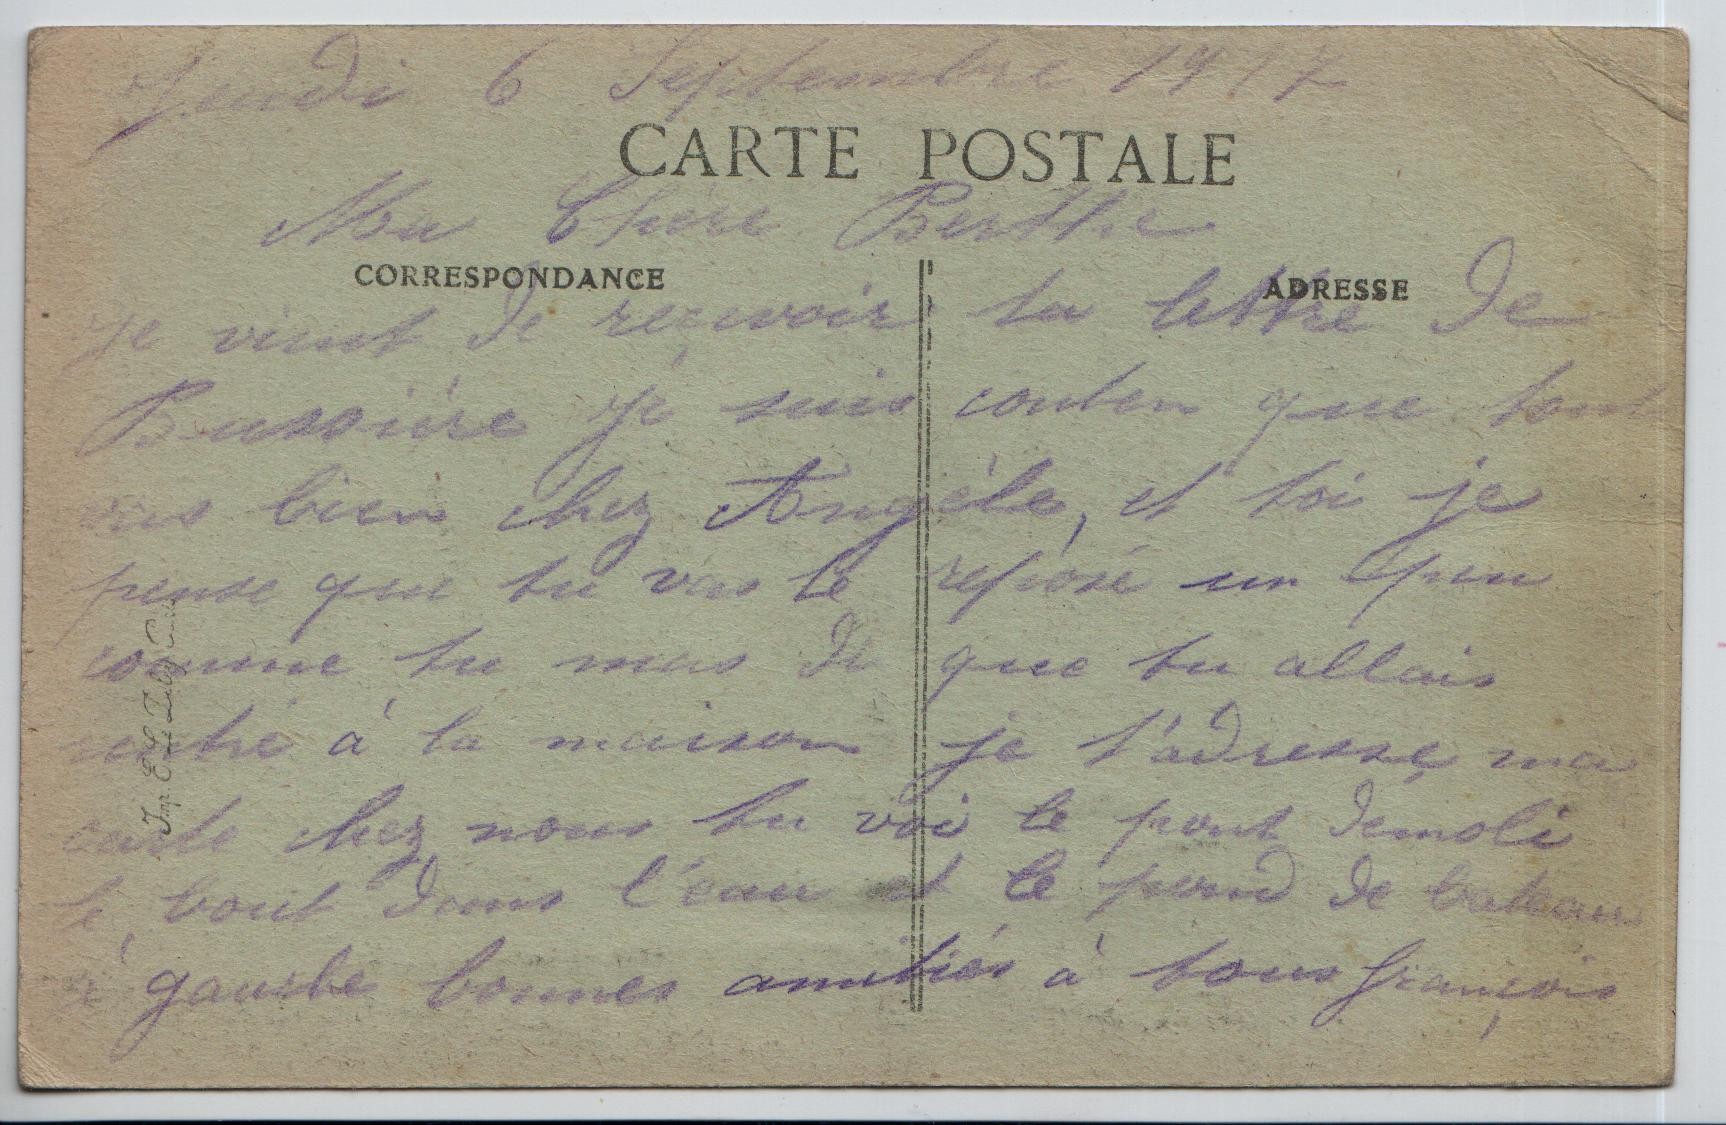 Jeudi 6 Septembre 1917
CARTE POSTALE
Ma Chere Berthe
CORRESPONDANCE
ADRESSE
je vient de reçevoir ta lettre de
Bussière je suis conten que tout
vas bien chez Angèle, et toi je
pense que tu vas te reposé un peu
comme tu mas di que tu allais
rentré à la maison je t'adresse ma
carte chez nous tu voi le pont demoli
le bout dans l'eau et le pond de bateau
a gauche bonnes amitiés à tous françois
Imp. E. Le